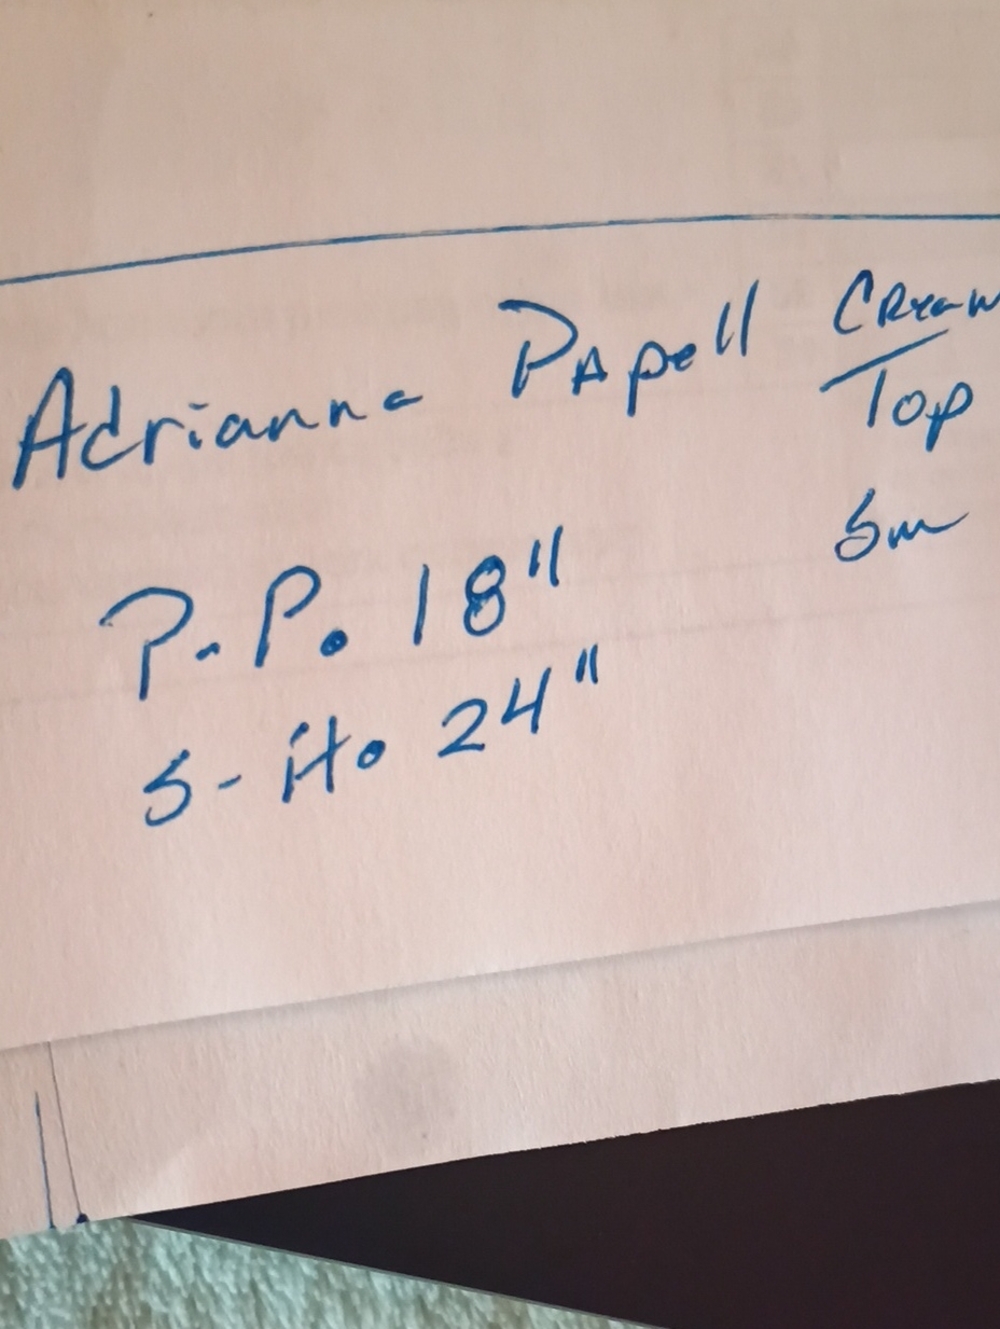 Adrianna Papell Cream
Top
Sm
P-P. 18"
S-ito 24"